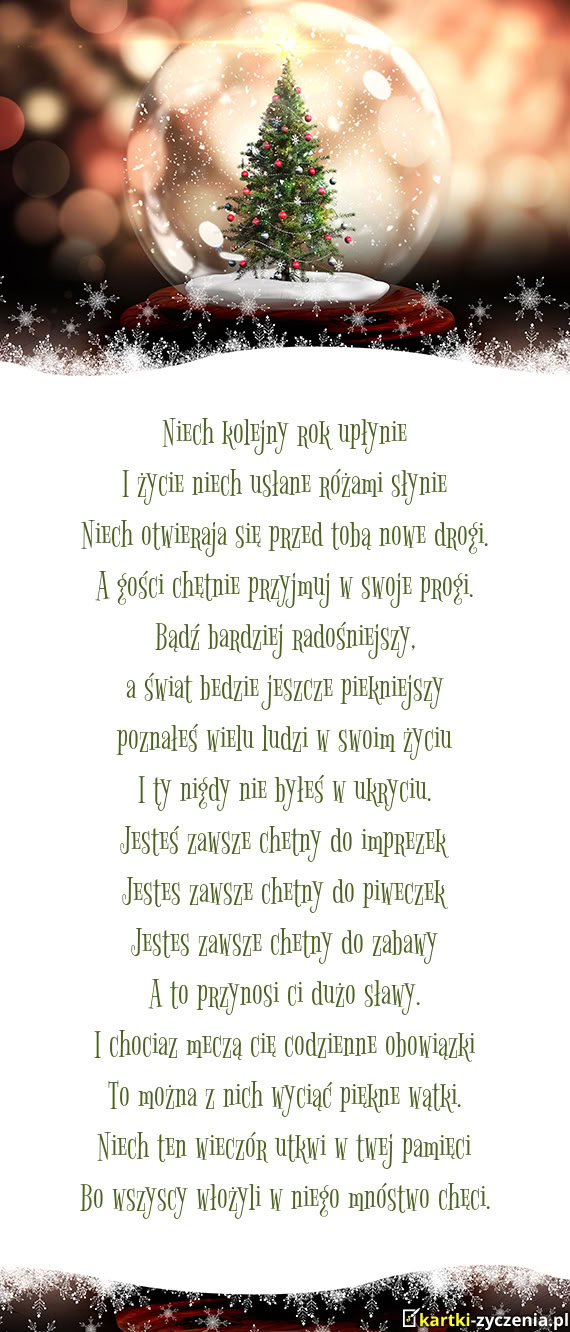 Niech kolejny rok upłynie
I życie niech usłane różami słynie
Niech otwieraja się przed tobą nowe drogi.
A gości chętnie przyjmuj w swoje progi.
Bądź bardziej radośniejszy,
a świat bedzie jeszcze piekniejszy
poznałeś wielu ludzi w swoim życiu
I ty nigdy nie byłeś w ukryciu.
Jesteś zawsze chetny do imprezek
Jestes zawsze chetny do piweczek
Jestes zawsze chetny do zabawy
A to przynosi ci dużo sławy.
I chociaz meczą cię codzienne obowiązki
To można z nich wyciąć piękne wątki.
Niech ten wieczór utkwi w twej pamięci
Bo wszyscy włożyli w niego mnóstwo chęci.
kartki-zyczenia.pl